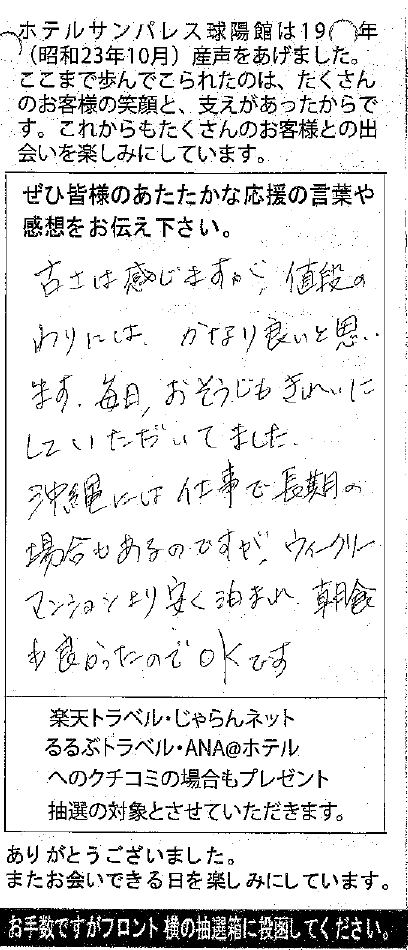 ホテルサンパレス球陽館は19 年
（昭和23年10月）産声をあげました。
ここまで歩んでこられたのは、たくさん
のお客様の笑顔と、支えがあったからで
す。これからもたくさんのお客様との出
会いを楽しみにしています。
ぜひ皆様のあたたかな応援の言葉や
感想をお伝え下さい。
古さは感じますが、値段の
わりには、かなり良いと思い
ます。毎日、おそうじもきれいに
していただいてました。
沖縄には仕事で長期の
場合もあるのですが、ウィークリー
マンションより安く泊まれ、朝食
も良かったのでOKです
楽天トラベル・じゃらんネット
るるぶトラベル・ANA@ホテル
へのクチコミの場合もプレゼント
抽選の対象とさせていただきます。
ありがとうございました。
またお会いできる日を楽しみにしています。
お手数ですがフロント横の抽選箱に投函してください。